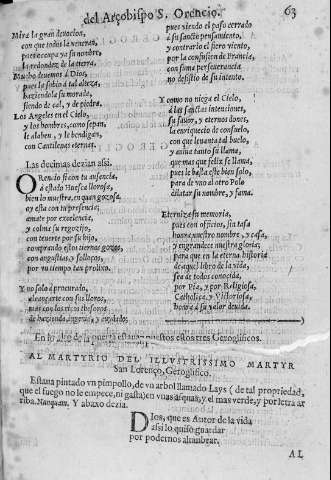 del Arçobispo S. Orencio. 63
Mira la gran deuocion,
con que todos la veneran,
pues ocupa ya su nombre
la redondez de la tierra.
Mucho deuemos à Dios,
pues la subiò à tal alteza,
haziendola su morada,
siendo de cal, y de piedra.
Los Angeles en el Cielo,
y los hombres, como sepan,
te alaben, y te bendigan,
con Cantilenas eternas.
Las decimas dezian assi.
ORencio si con tu ausencia,
à estado Huesca llorosa,
bien lo muestra, en quan gozosa
oy està con tu presencia;
amate por excelencia,
y colma su regozijo,
con tenerte por su hijo,
comprando estos tiernos gozos,
con angustias, y solloços,
por vn tiempo tan prolixo.
Y no solo à procurado,
alcançarte con sus lloros,
mas con los ricos thesoros
de haziendas,
pues viendo el passo cerrado
à su sancto pensamiento,
y contrario el fiero viento,
por la confusion de Francia,
con suma perseverancia
no desistio de su intento.
Y como no niega el Cielo,
à las sanctas intenciones,
su fauor, y eternos dones,
la enriqueciò de consuelo,
con que leuanta tal buelo,
y auiua tanto su llama,
que mas que feliz se llama,
pues le basta este bien solo,
para de vno al otro Polo
dilatar su nombre, y fama.
Eterniza su memoria,
pues con officios, sin tassa
honra nuestro nombre, y casa,
y engrandece nuestra gloria;
para que en la eterna historia
de aquel libro de la vida,
sea de todos conocida,
por Pia, y por Religiosa,
Catholica, y Victoriosa,
a su valor deuida.
En lo alto de la puerta estauan puestos estos tres Geroglificos.
AL MARTYRIO DEL ILLVSTRISSIMO MARTYR
San Lorenço, Geroglifico.
Estaua pintado vn pimpollo, de vn arbol llamado Lays (de tal propriedad,
que el fuego no le empece, ni gasta) en vnas asquas, y el mas verde, y por letra ar
riba. Nunquam. Y abaxo dezia.
Dios, que es Autor de la vida
assi lo quiso guardar
por podernos alumbrar.
AL